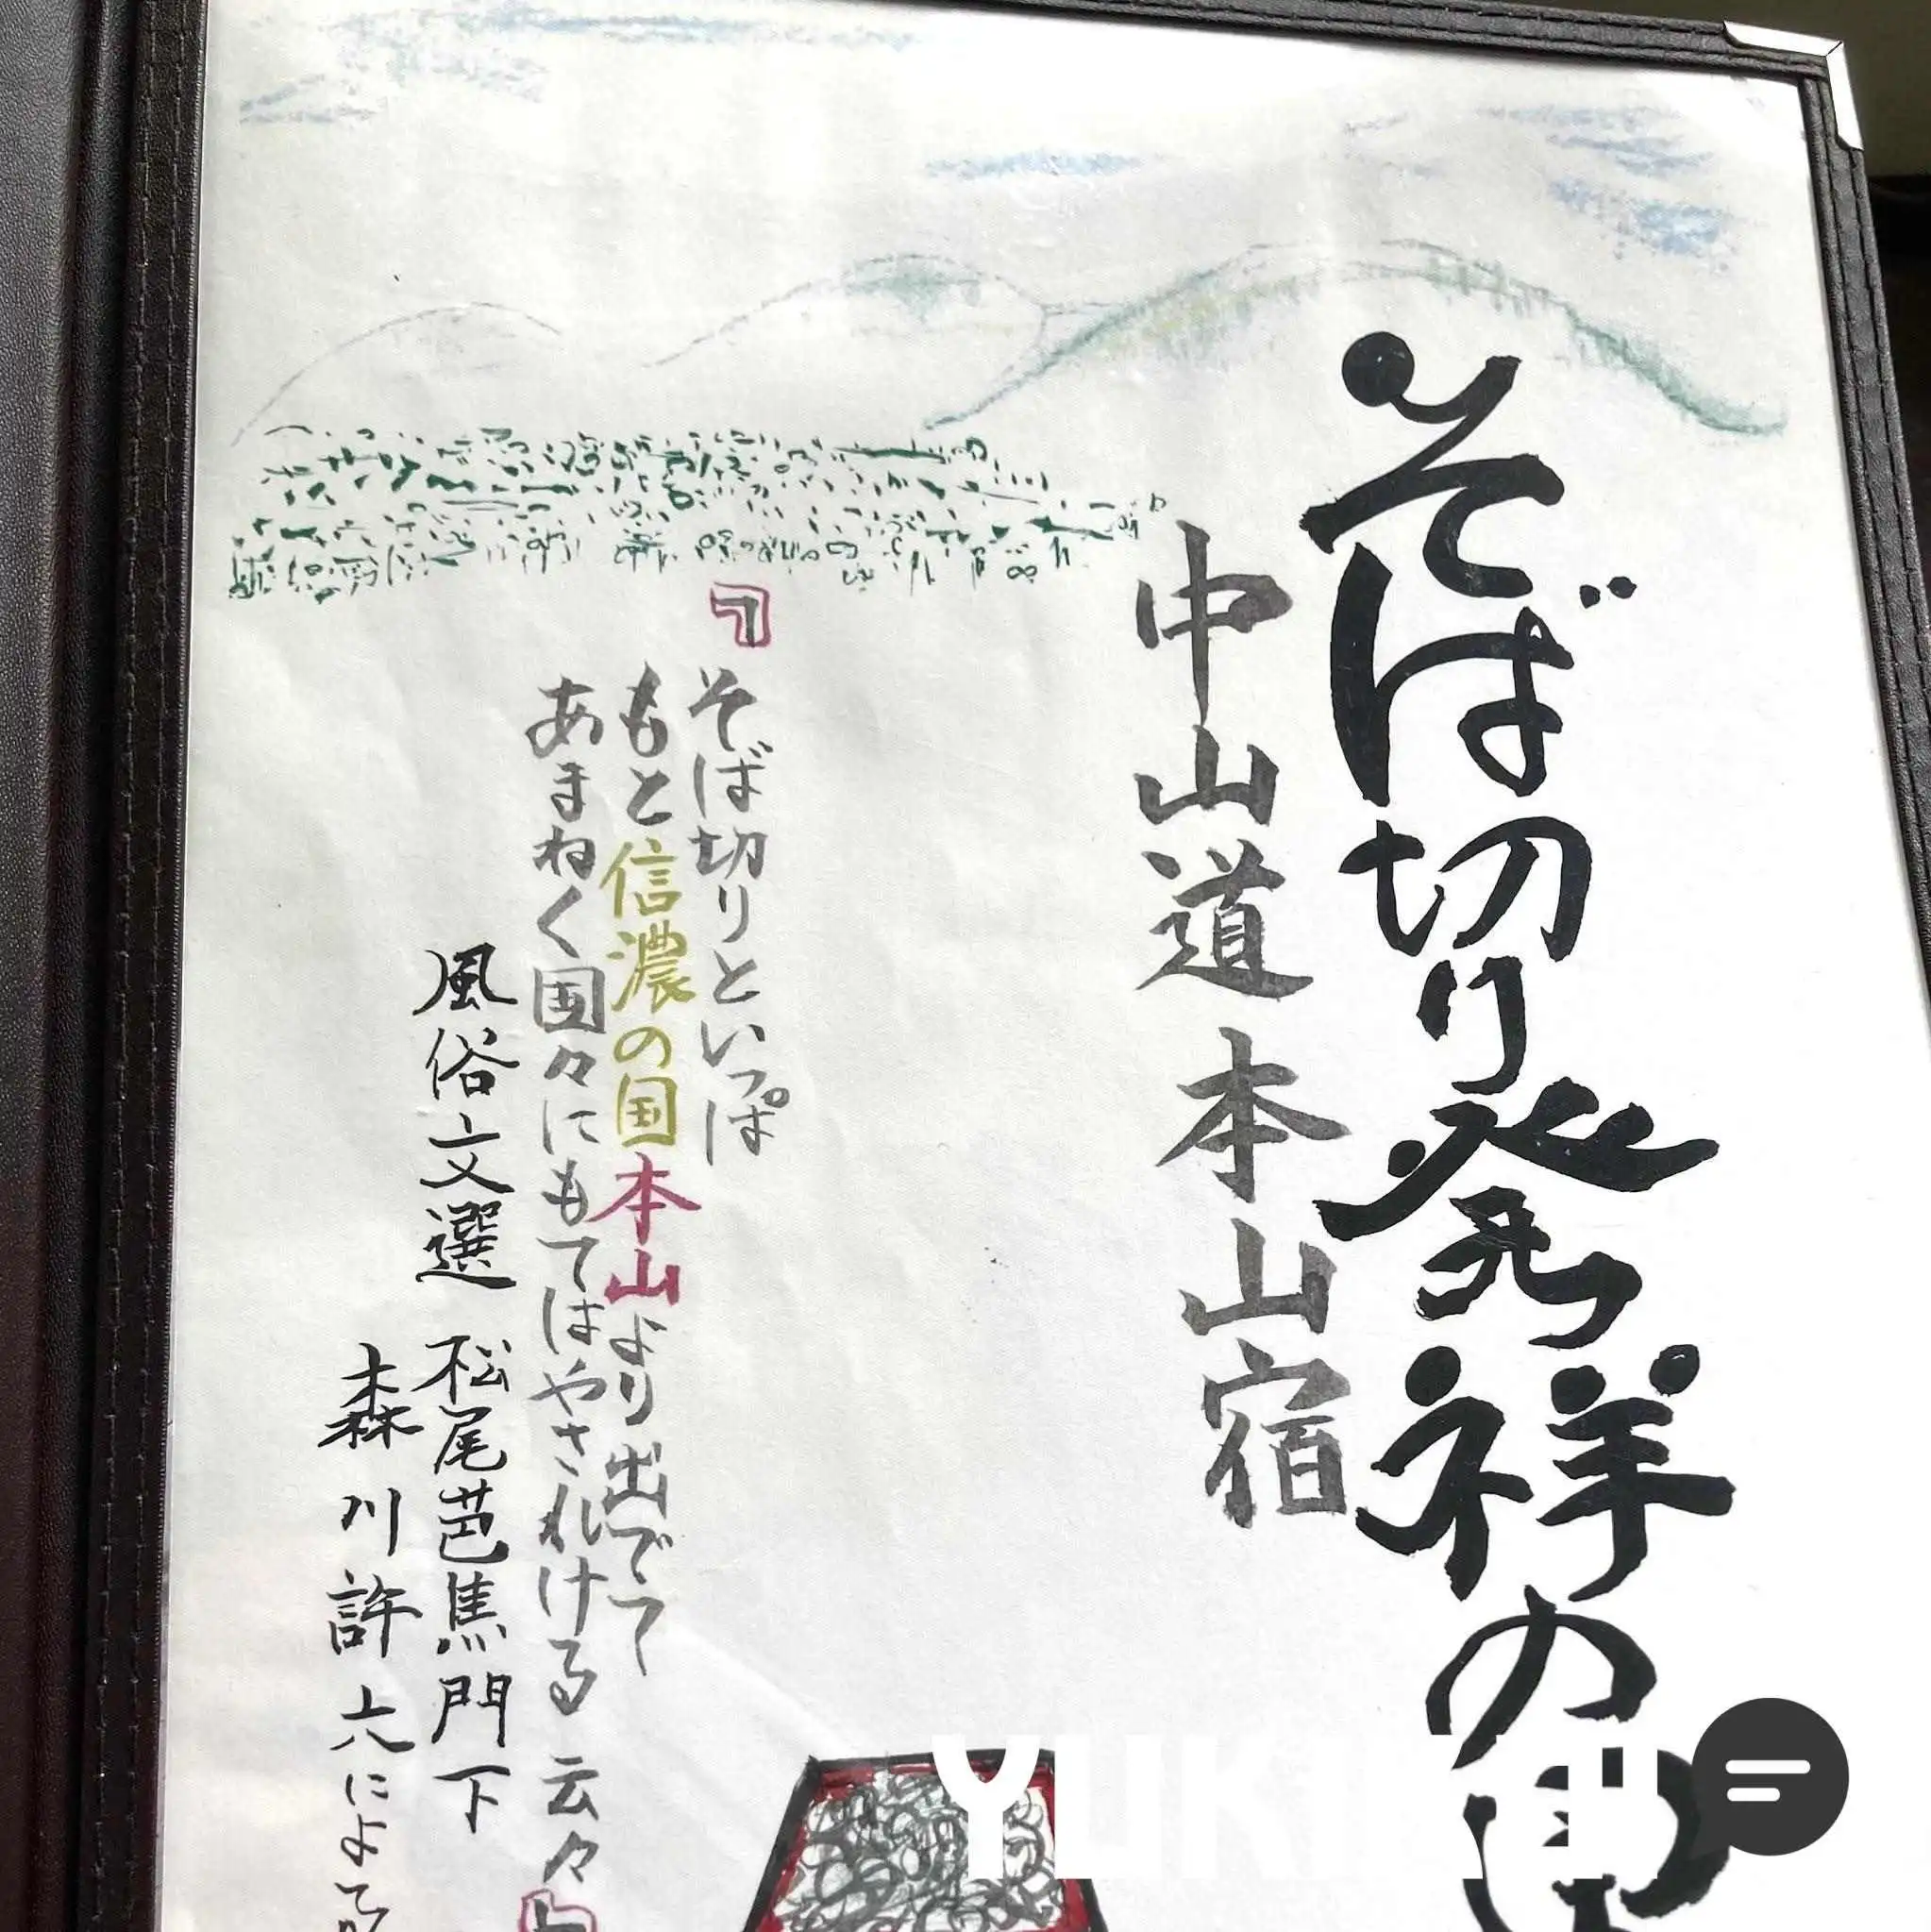 そば切り発祥の里
中山道本山宿
「そば切りといっぱ
もと信濃の国本山より出でて
あまねく国々にもてはやされける 云々」
風俗文選 松尾芭蕉門下
森川許六によて